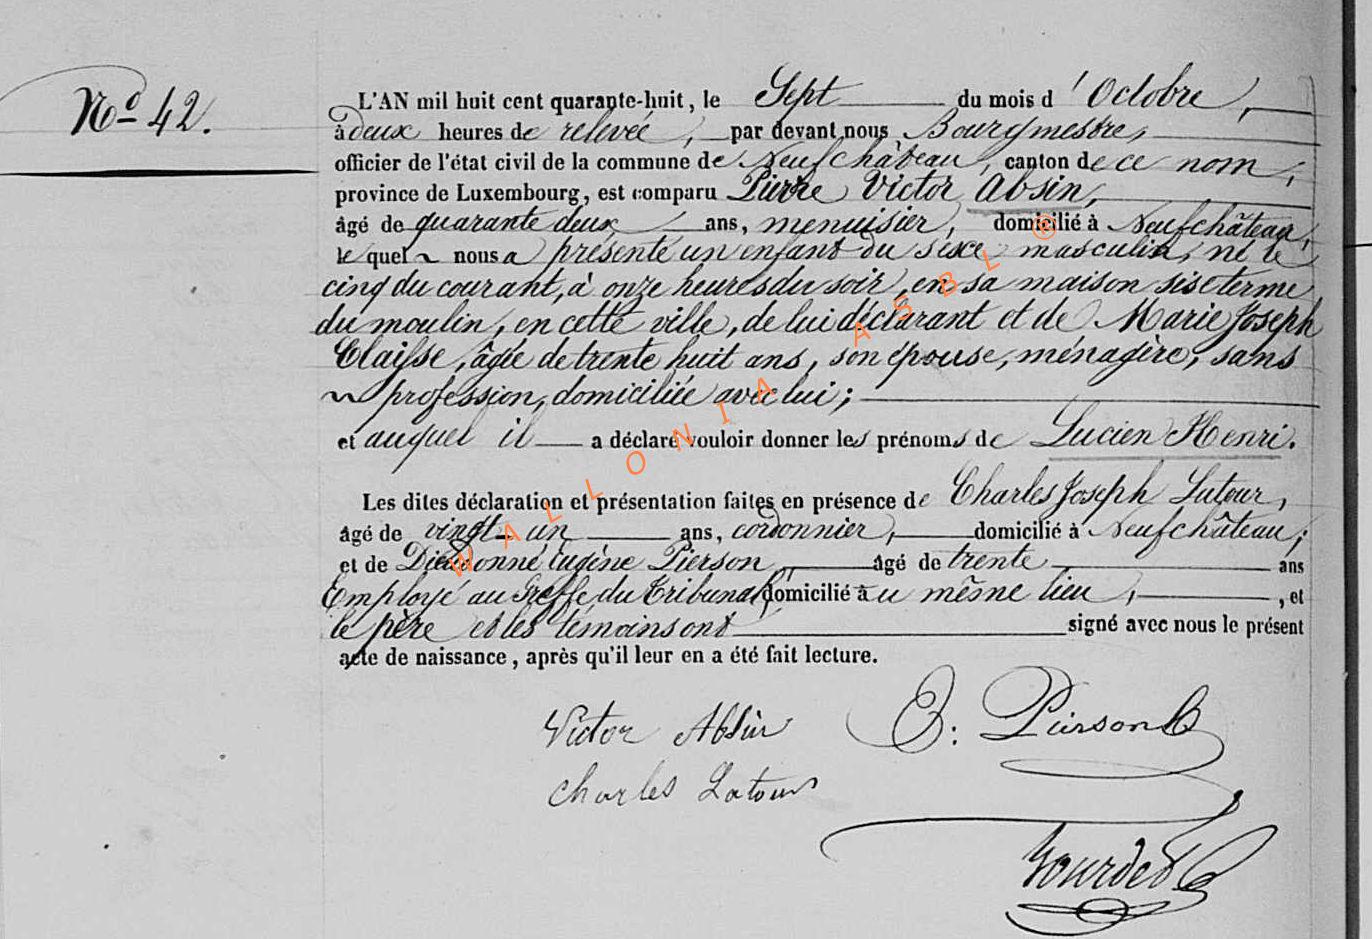 Nº 42.
L'AN mil huit cent quarante-huit, le Sept du mois d'Octobre,
à deux heures de relevée, par devant nous Bourgmestre,
officier de l'état civil de la commune de Neufchâteau, canton de ce nom,
province de Luxembourg, est comparu Pierre Victor Absin,
âgé de quarante deux ans, menuisier, domicilié à Neufchâteau,
lequel nous a présenté un enfant du sexe masculin, né le
cinq du courant, à onze heures du soir, en sa maison sise terme
du moulin, en cette ville, de lui déclarant et de Marie Joseph
Claisse, âgée de trente huit ans, son épouse, ménagère, sans
profession, domiciliée avec lui;
et auquel il a déclaré vouloir donner les prénoms de Lucien Henri.
Les dites déclaration et présentation faites en présence de Charles Joseph Latour,
âgé de vingt un ans, cordonnier, domicilié à Neufchâteau;
et de Dieudonné Eugène Pierson, âgé de trente ans
Employé au Greffe du Tribunal, domicilié au même lieu, , et
le père et les témoins ont signé avec nous le présent
acte de naissance, après qu'il leur en a été fait lecture.
Victor Absin
Pierson
Charles Latour
WALLONIA ASBL ®